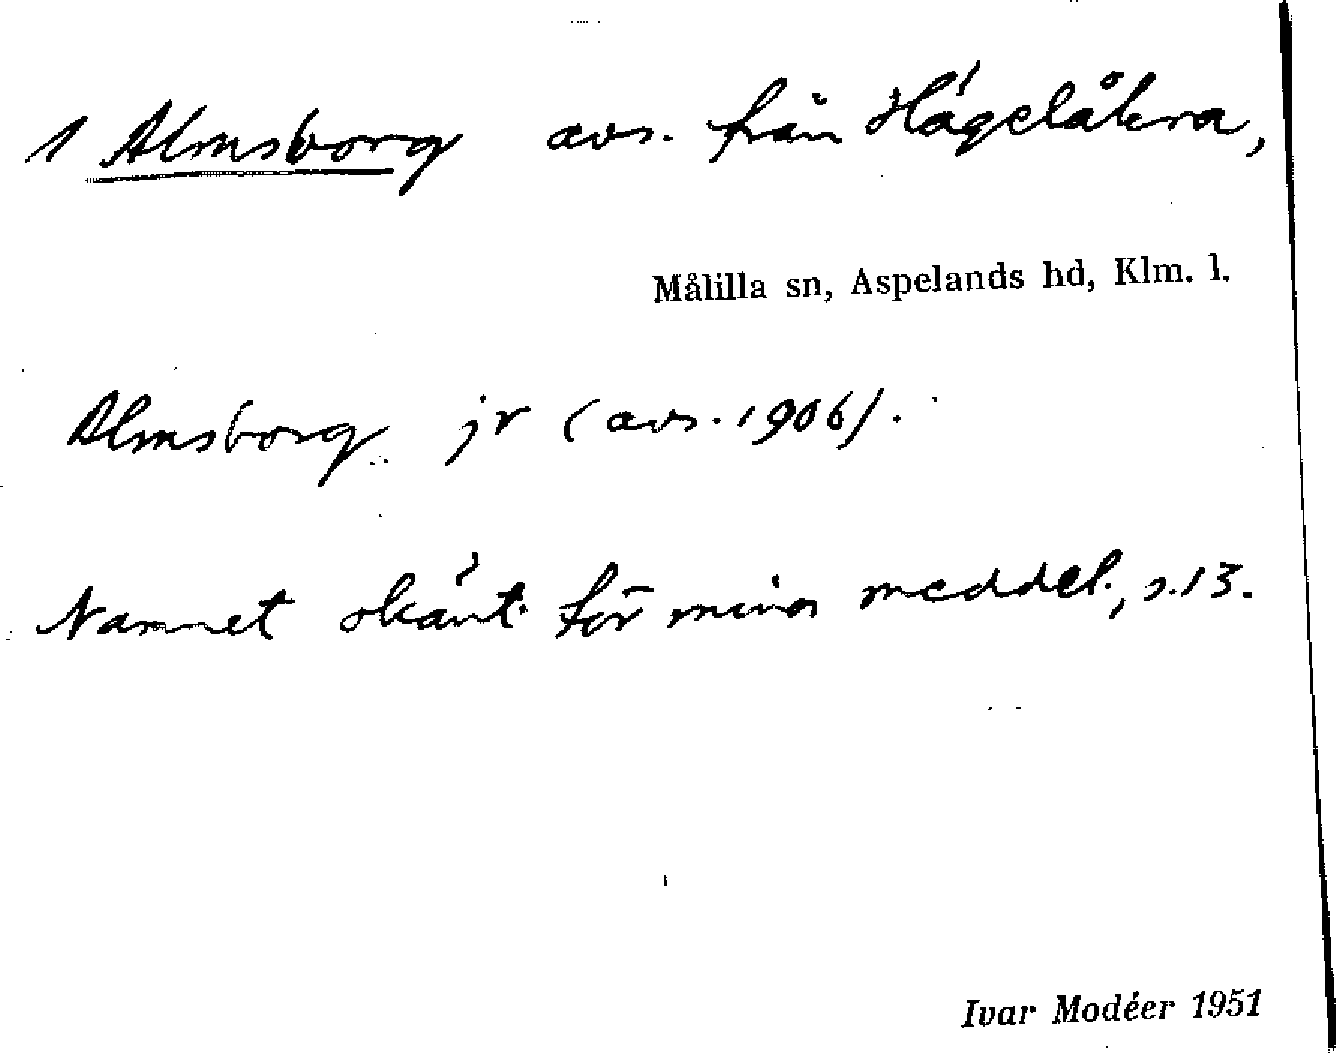 1 Almsborg avs. från Hägelåkra,
Målilla sn, Aspelands hd, Klm. l.
Almsborg jr (avs. 1906).
Namnet okänt för mina meddel., s. 13.
Ivar Modéer 1951